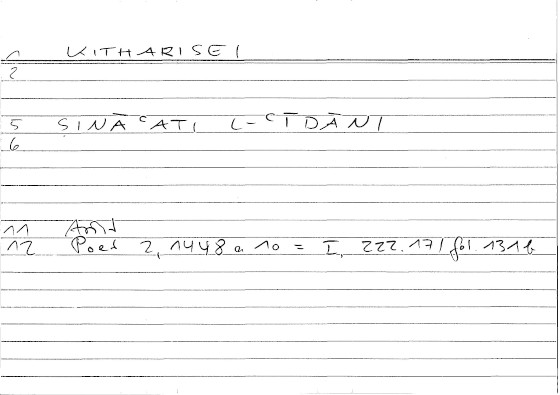 1 KITHARISEI
2
5 ṢINĀʿATI L-ʿĪDĀNI
6
11 Arist
12 Poet 2, 1448 a 10 = I, 222.17 / fol. 131b